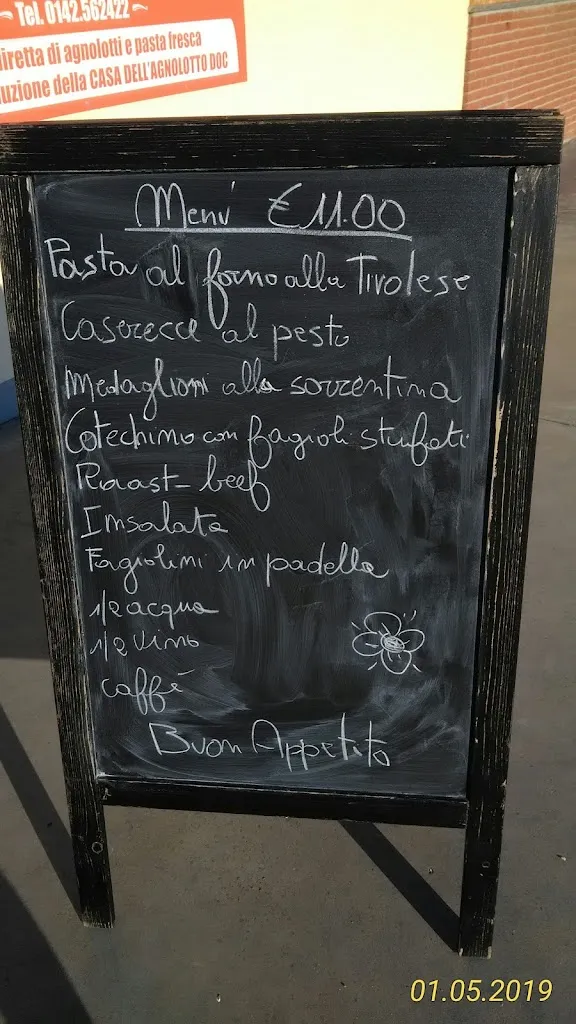 Tel. 0142.562422
diretta di agnolotti e pasta fresca
uzione della CASA DELL'AGNOLOTTO DOC
Menù €11.00
Pasta al forno alla Tirolese
Caserecce al pesto
Medaglioni alla sorrentina
Cotechino con fagioli stufati
Roast-beef
Insalata
Fagiolini in padella
1/2 acqua
1/2 vino
caffè
Buon Appetito
01.05.2019